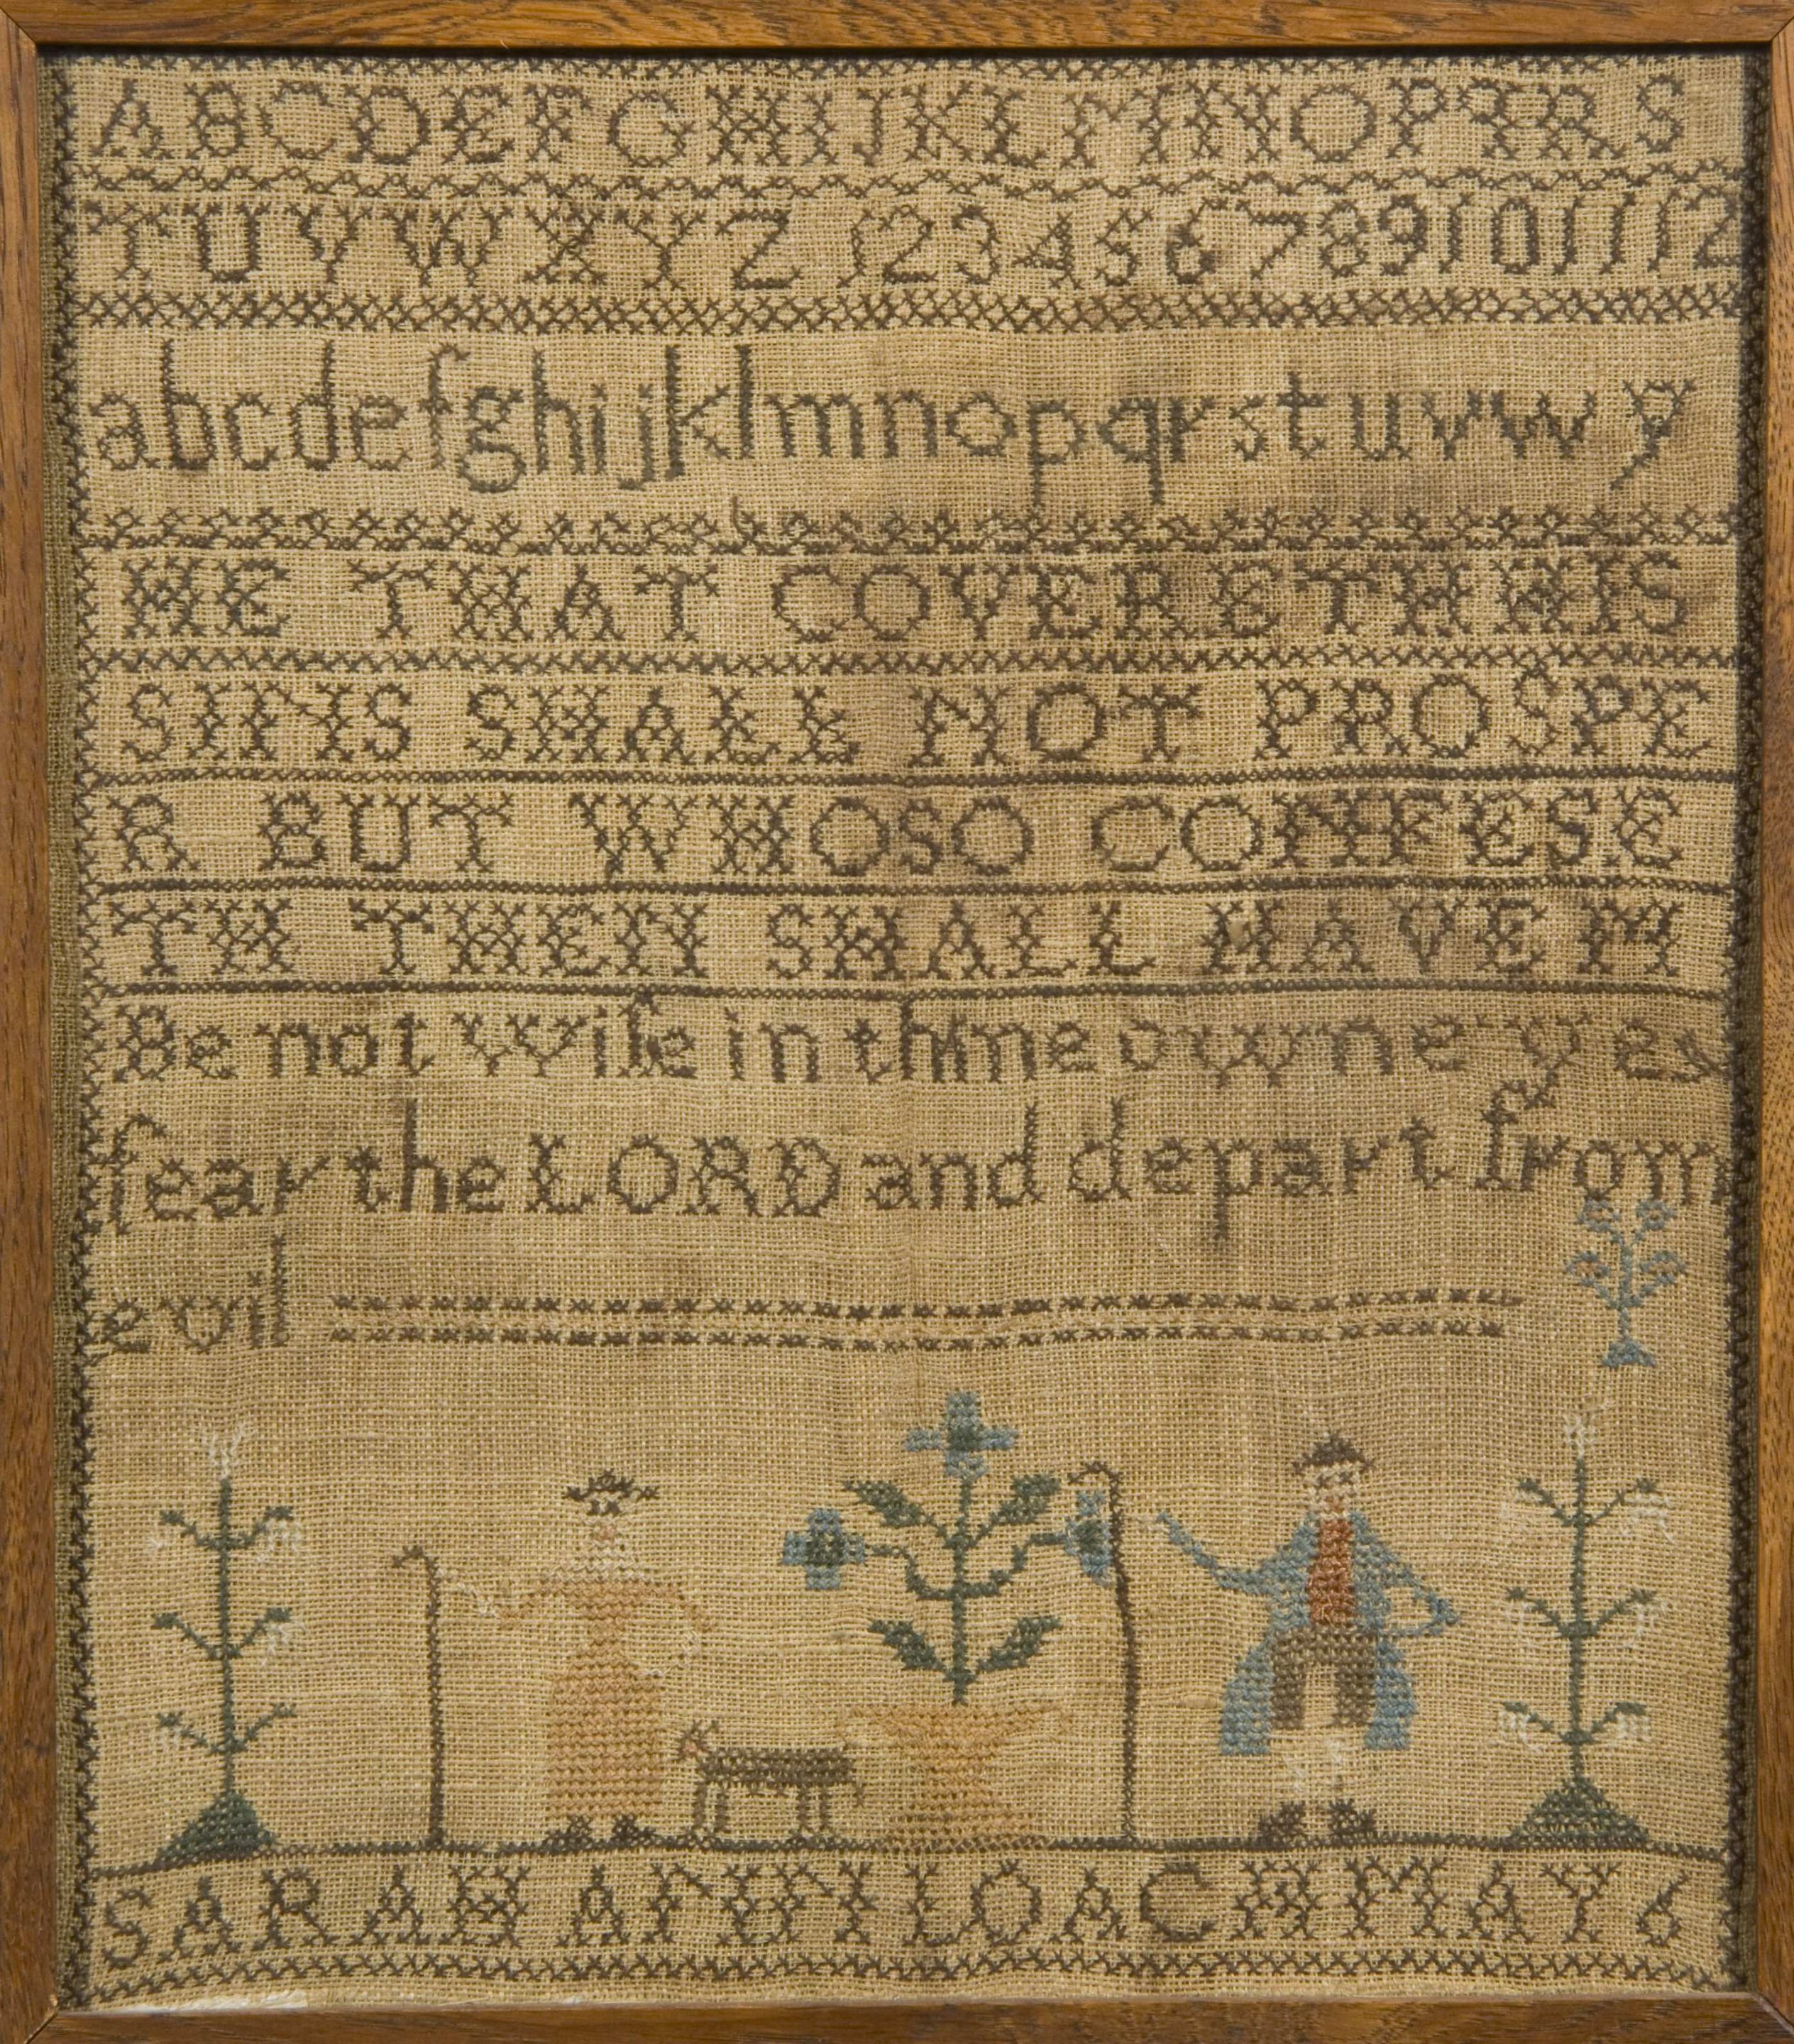 ABCDEFGHIJKLMNOPQRS
TUVWXYZ 123456789101112
abcdefghijklmnopqrstuvwy
HE THAT COVERETH HIS
SINS SHALL NOT PROSPE
R BUT WHOSO CONFESE
TH THEN SHALL HAVE M
Be not wise in thine own eyes
fear the LORD and depart from
evil
SARAH ANN LOACH MAY 6